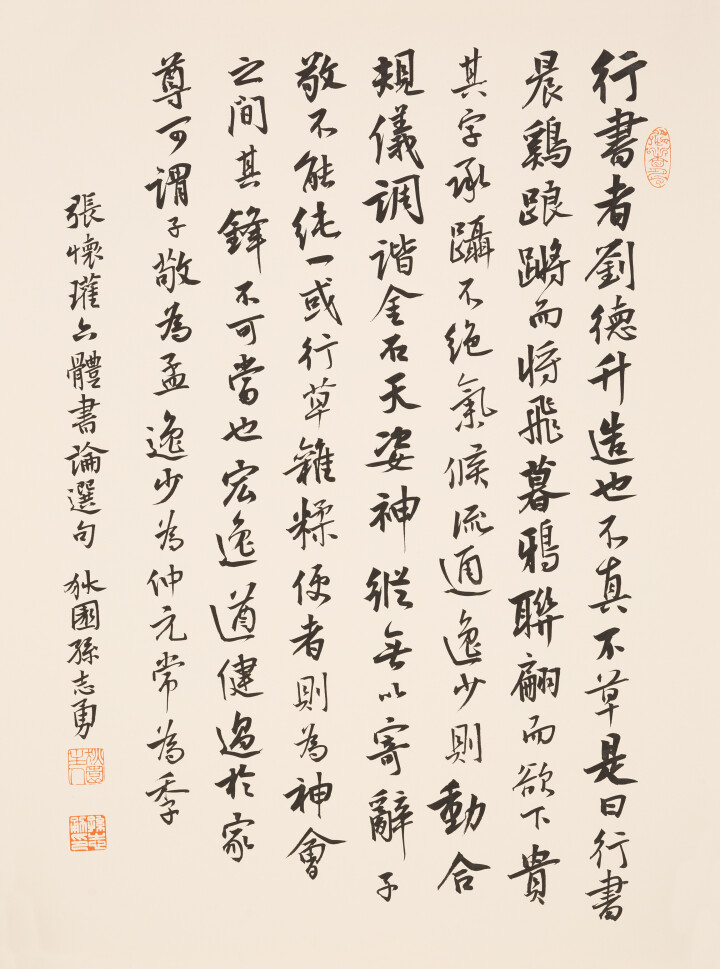 行書者劉德升造也不真不草是曰行書
晨鷄踉蹡而将飛暮鴉聯翩而欲下貴
其字承躡不絶氣候流通逸少則動合
規儀調諧金石天姿神縱無以寄辭子
敬不能純一或行草雜糅便者則為神會
之間其鋒不可當也宏逸遒健過於家
尊可謂子敬為孟逸少為仲元常為季
張懷瓘六體書論選句 狄國孫志勇